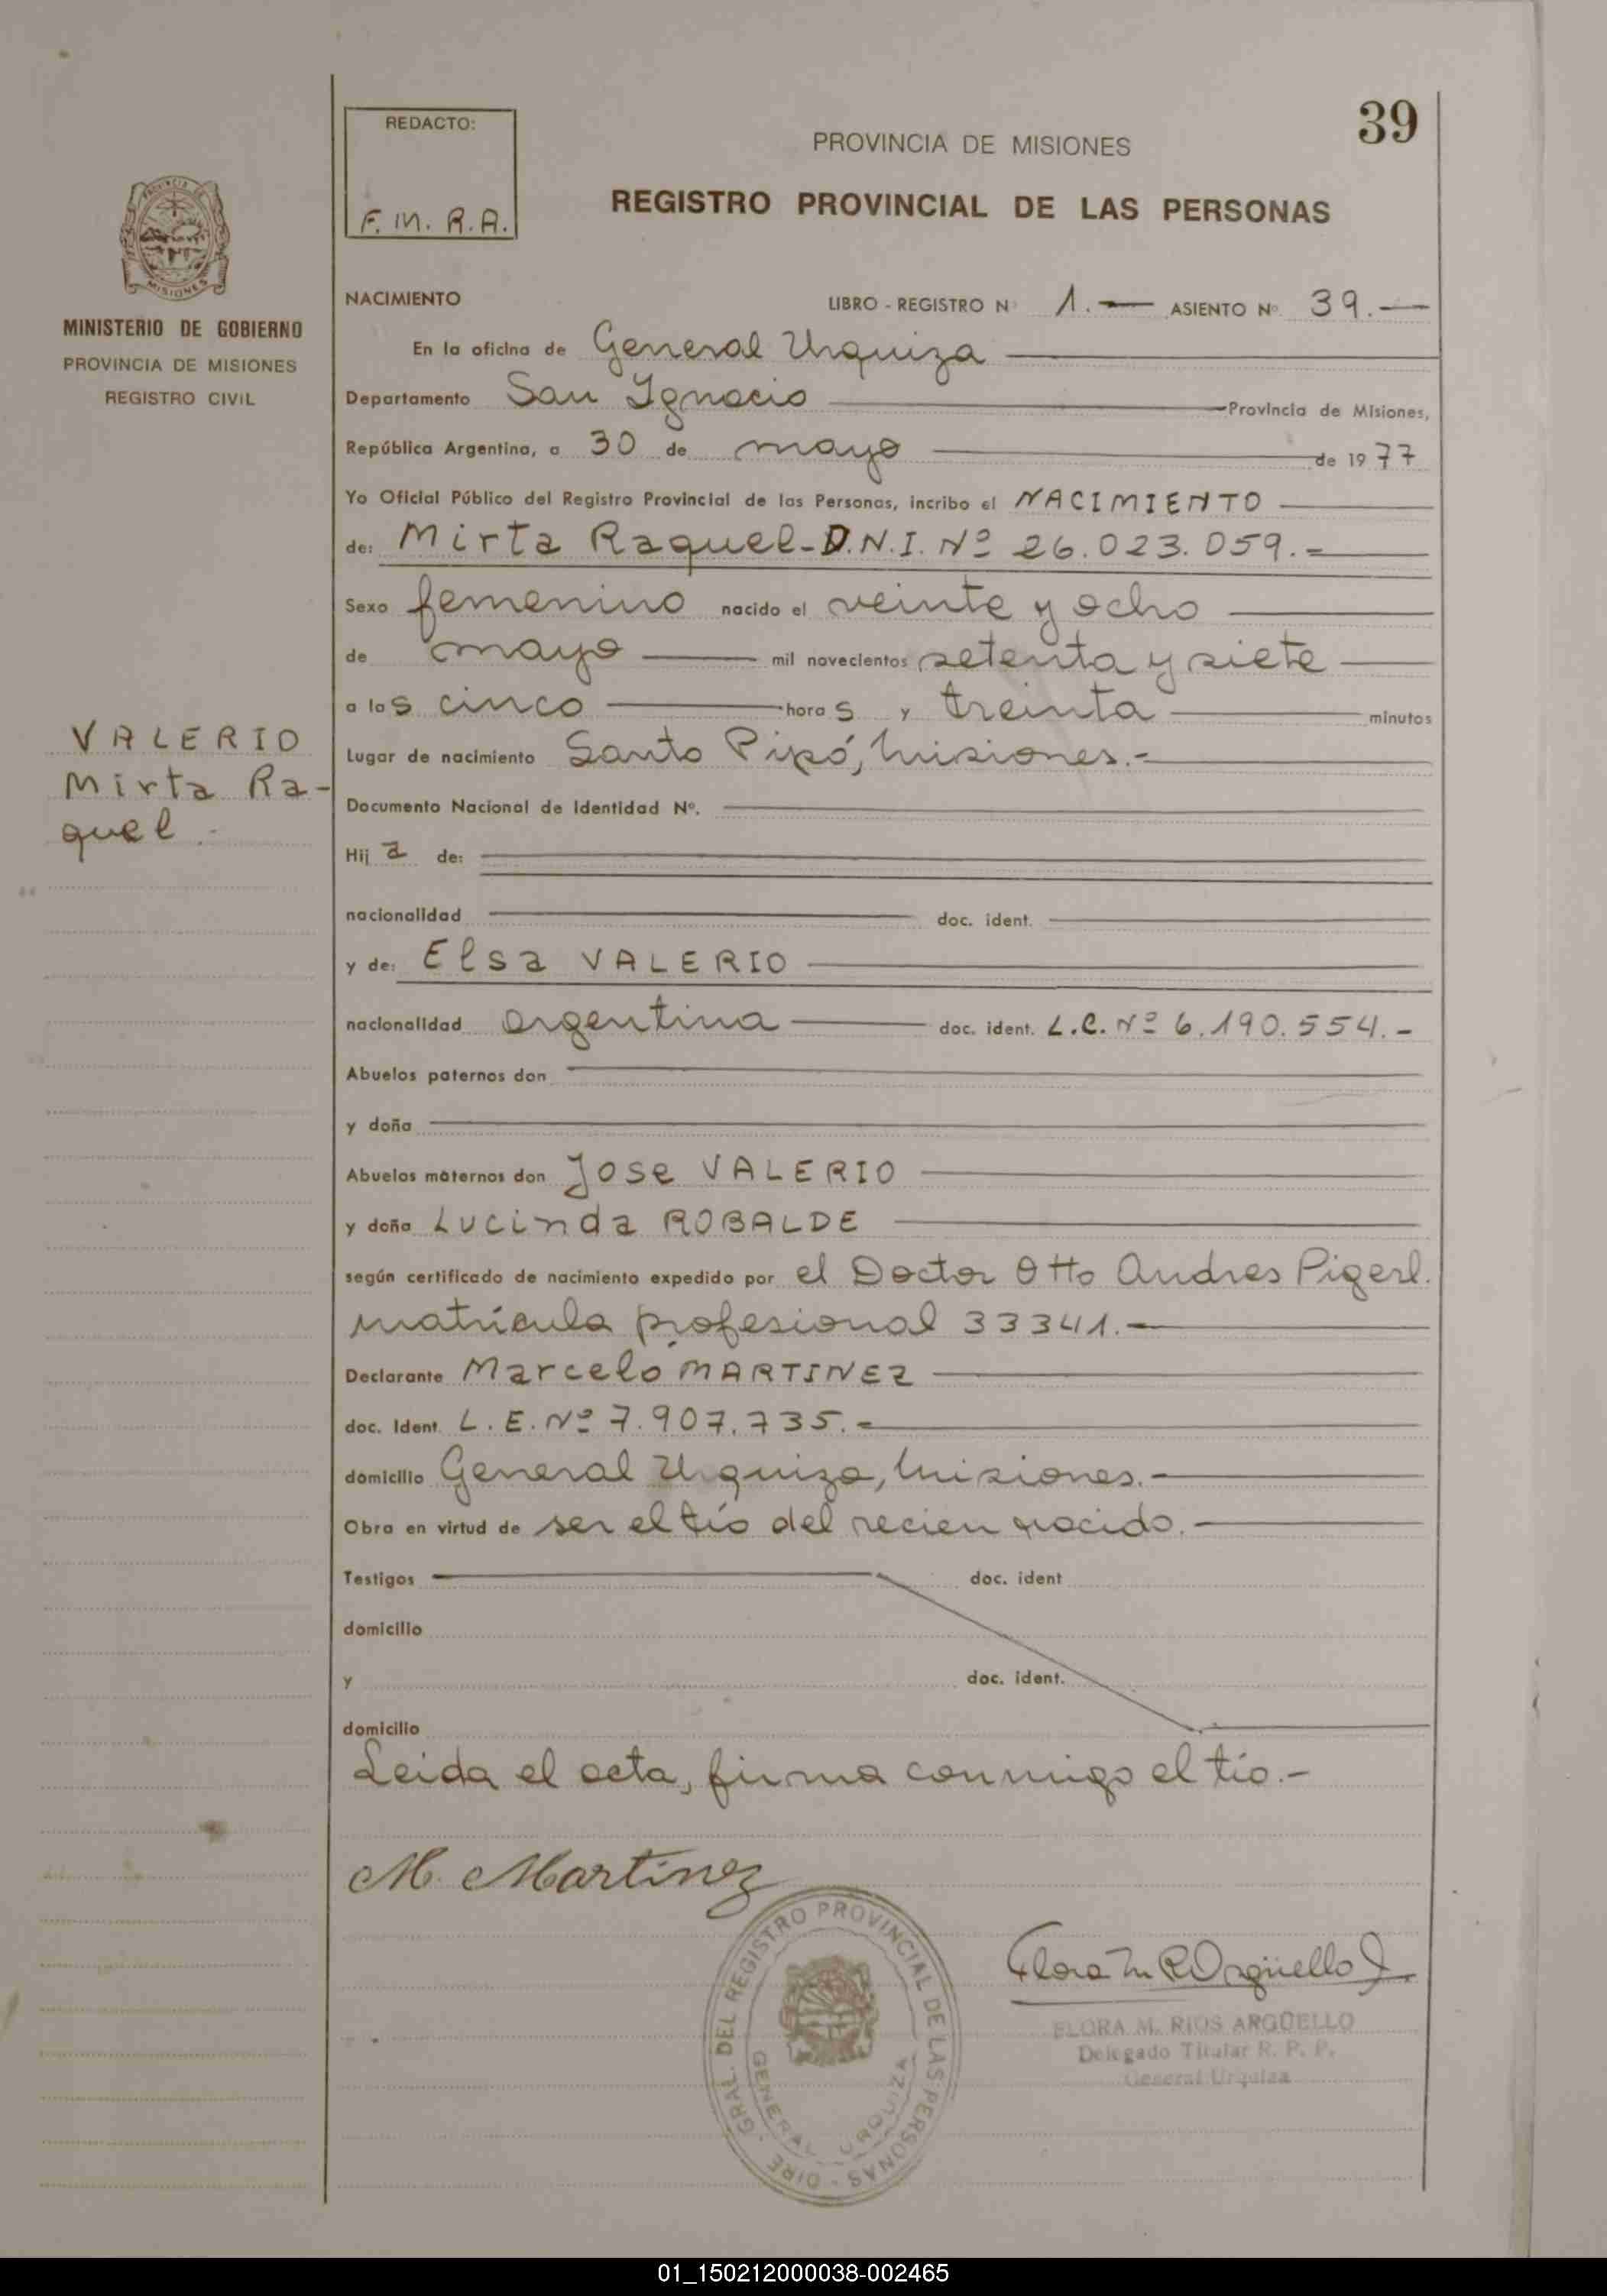 39
REDACTO:
F. M. R. A.
PROVINCIA DE MISIONES
REGISTRO PROVINCIAL DE LAS PERSONAS
MISIONES
MINISTERIO DE GOBIERNO
PROVINCIA DE MISIONES
REGISTRO CIVIL
VALERIO
Mirta Ra-
quel.
NACIMIENTO LIBRO - REGISTRO Nº 1.— ASIENTO Nº 39.—
En la oficina de General Urquiza
Departamento San Ignacio Provincia de Misiones,
República Argentina, a 30 de mayo de 1977
Yo Oficial Público del Registro Provincial de las Personas, incribo el NACIMIENTO
de: Mirta Raquel-D.N.I. Nº 26.023.059.-
Sexo femenino nacido el veinte y ocho
de mayo mil novecientos setenta y siete
a las cinco horas y treinta minutos
Lugar de nacimiento Santo Pipó, Misiones.-
Documento Nacional de Identidad Nº.
Hija de:
nacionalidad doc. ident.
y de: Elsa VALERIO
nacionalidad argentina doc. ident. L.C. Nº 6.190.554.-
Abuelos paternos don
y doña
Abuelos maternos don Jose VALERIO
y doña Lucinda ROBALDE
según certificado de nacimiento expedido por el Doctor Otto Andres Pigerl.
matrícula profesional 33341.-
Declarante Marcelo MARTINEZ
doc. Ident. L.E. Nº 7.907.735.-
domicilio General Urquiza, Misiones.-
Obra en virtud de ser el tío del recien nacido.-
Testigos doc. ident
domicilio
y doc. ident.
domicilio
Leida el acta, firma conmigo el tío.-
M. Martínez
Flora M R Argüello
FLORA M. RIOS ARGÜELLO
Delegado Titular R. P. P.
General Urquiza
DIRE. GRAL. DEL REGISTRO PROVINCIAL DE LAS PERSONAS -
GENERAL URQUIZA
01_150212000038-002465